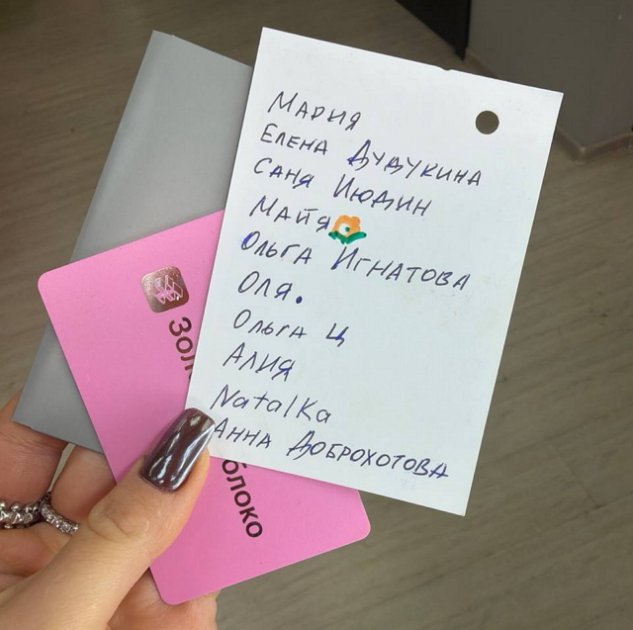 Мария
Елена Дудукина
Саня Июдин
Майя
Ольга Игнатова
Оля.
Ольга Ц
Алия
Natalka
Анна Доброхотова
Зол
блоко